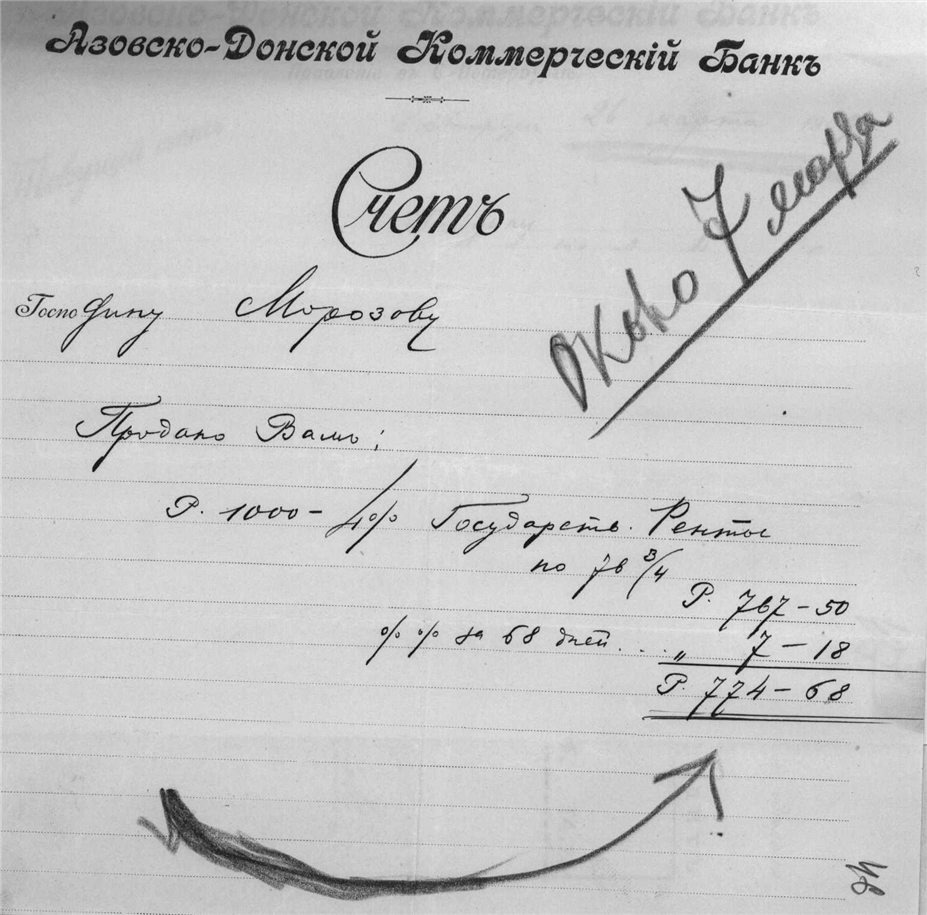 Азовско-Донской Коммерческій Банкъ
Счетъ
около 7 марта
Господину Морозову
Продано Вамъ:
Р. 1000- 4% Государств. Ренты
по 76 3/4
Р. 767-50
% % за 68 дней . . . „ 7-18
Р. 774-68